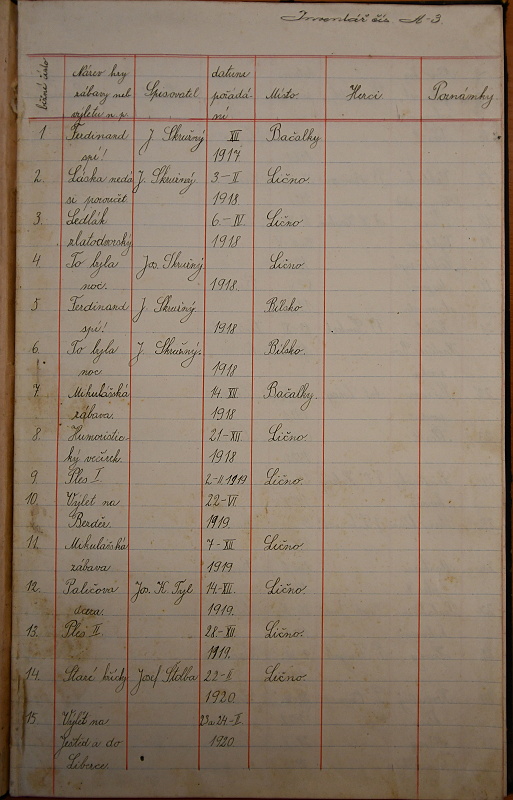 Inventář čís. A-3.
běžné číslo
Název hry
zábavy neb
výletu n. p.
Spisovatel
datum
pořádá-
ní
Místo.
Herci.
Poznámky.
1 Ferdinand J. Skružný XII Bačalky
spí! 1917
2. Láska nedá J. Skružný 3.-II Lično.
si poroučet 1918
3. Sedlák 6.-IV. Lično
zlatodvorský 1918
4 To byla Jos. Skružný Lično.
noc. 1918.
5 Ferdinand J. Skružný. Bílsko.
spí! 1918
6. To byla J. Skružný. Bílsko.
noc 1918
7. Mikulášská 14. XII Bačalky.
zábava. 1918
8. Humoristic- 21-XII Lično.
ký večírek. 1918
9. Ples I. 2-II 1919 Lično.
10. Výlet na 22-VI
Bezděz. 1919.
11. Mikulášská 7-XII Lično.
zábava 1919
12. Paličova Jos. K. Tyl 14.-XII. Lično.
dcera. 1919.
13. Ples II. 28-XII. Lično.
1919.
14. Staré hříchy Josef Štolba 22-II Lično.
1920.
15. Výlet na 23 a 24.-V.
Ještěd a do 1920
Liberce.